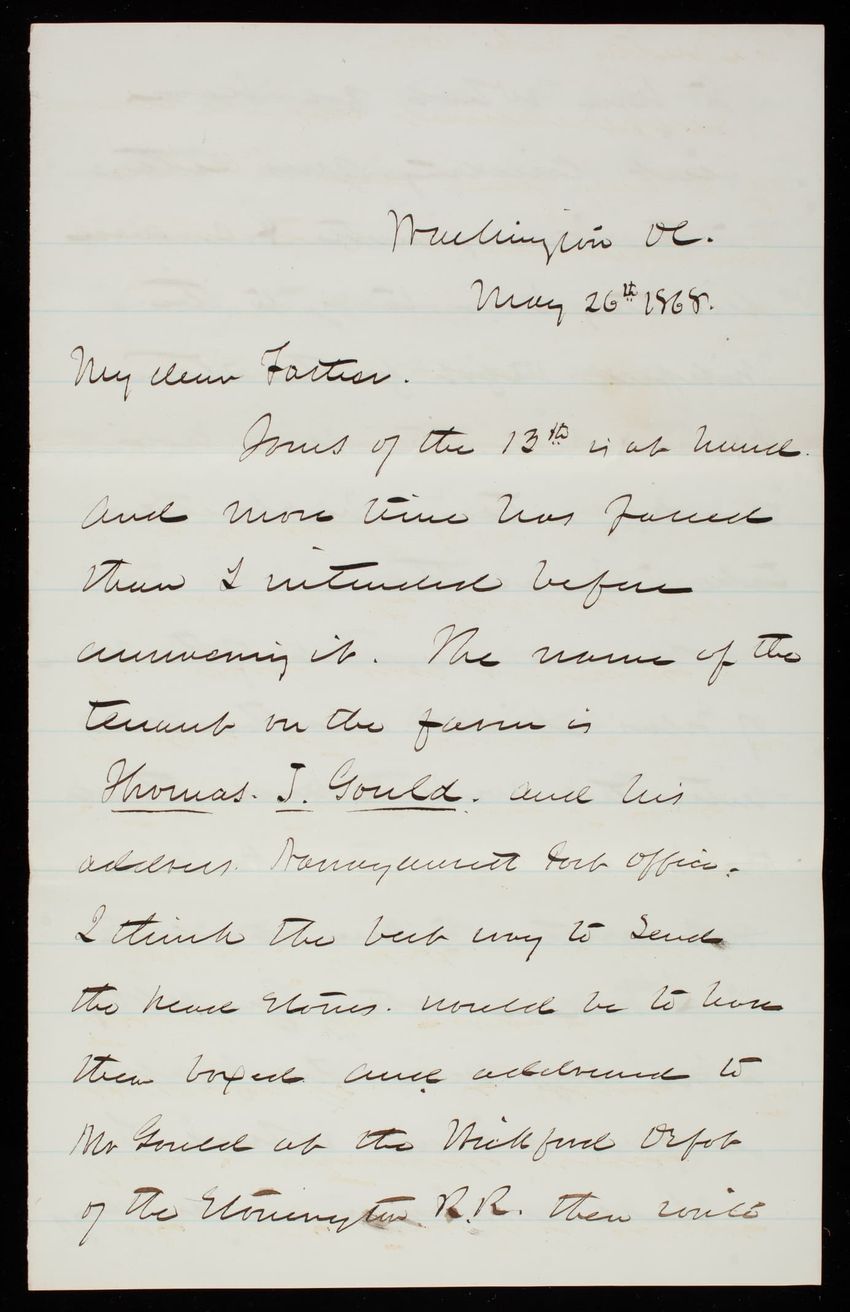 Washington DC.
May 26th 1868.
My dear Father.
Yours of the 13th is at hand.
and more time has passed
than I intended before
answering it. The name of the
tenant on the farm is
Thomas. J. Gould. and his
address. Narragansett Post Office.
I think the best way to send
the head stones. would be to have
them boxed and addressed to
Mr Gould at the Wickford Depot
of the Stonington R.R. then write